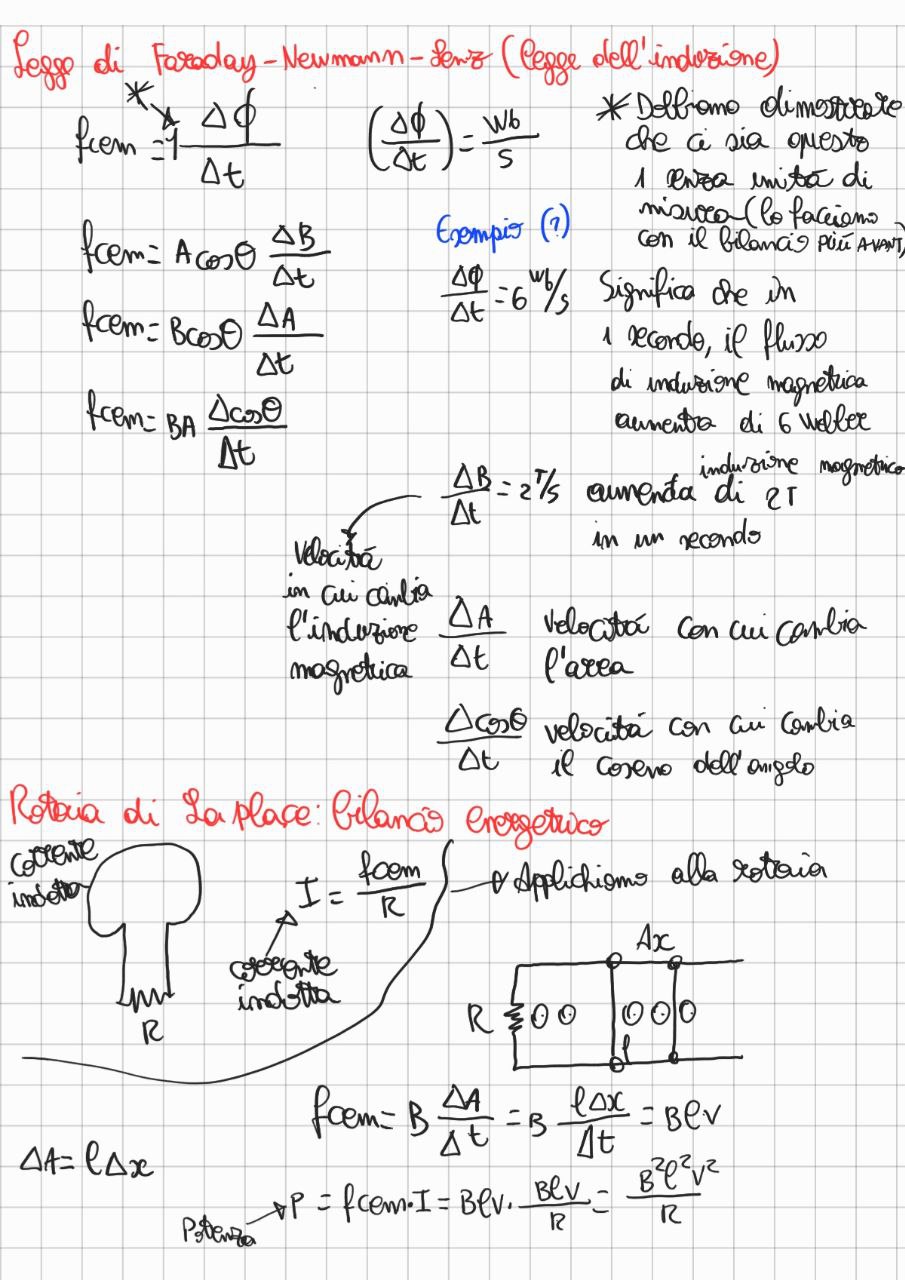 Legge di Faraday-Newmann-Lenz (legge dell'induzione)
*
fcem = 1 ΔΦ/Δt
(ΔΦ/Δt) = Wb/s
* Dobbiamo dimostrare
che ci sia questo
1 senza unitá di
misura (lo facciamo
con il bilancio PIÚ AVANTI)
fcem = A cosθ ΔB/Δt
fcem = B cosθ ΔA/Δt
fcem = BA Δcosθ/Δt
Esempio (?)
ΔΦ/Δt = 6 Wb/s Significa che in
1 secondo, il flusso
di induzione magnetica
aumenta di 6 Weber
induzione magnetica
ΔB/Δt = 2 T/s aumenta di 2T
in un secondo
Velocitá
in cui cambia
l'induzione
magnetica
ΔA/Δt velocitá con cui cambia
l'area
Δcosθ/Δt velocitá con cui cambia
il coseno dell'angolo
Rotaia di Laplace: bilancio energetico
corrente
indotta
R
I = fcem/R
corrente
indotta
Applichiamo alla rotaia
Δx
R
l
fcem = B ΔA/Δt = B lΔx/Δt = Blv
ΔA = lΔx
Potenza
P = fcem·I = Blv · Blv/R = B²l²v²/R